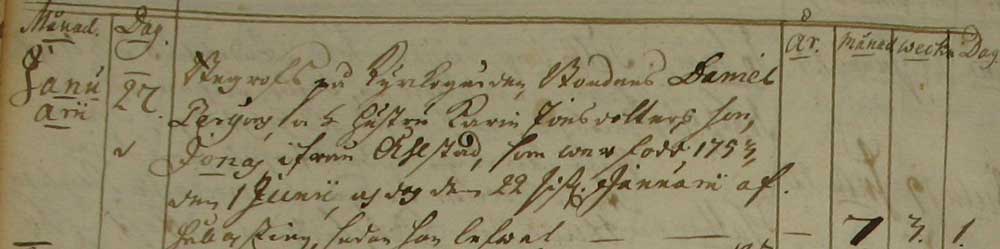 Månad. Dag. År. Månad Weck. Dag.
Januarii 27. Begrofs på Kyrkogården, Bondens Daniel
Hustru Karin Jonsdotters son,
Jonas ifrån Åhlstad, som war född 1753,
den 1 Junii, och dog den 22 sist. Januarii af
sedan han lefwat — — 7 3. 1.